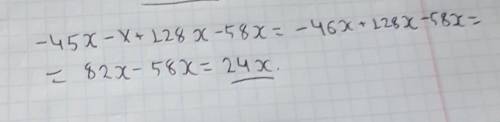 -45x - x + 128x - 58x = -46x + 128x - 58x =
= 82x - 58x = 24x.